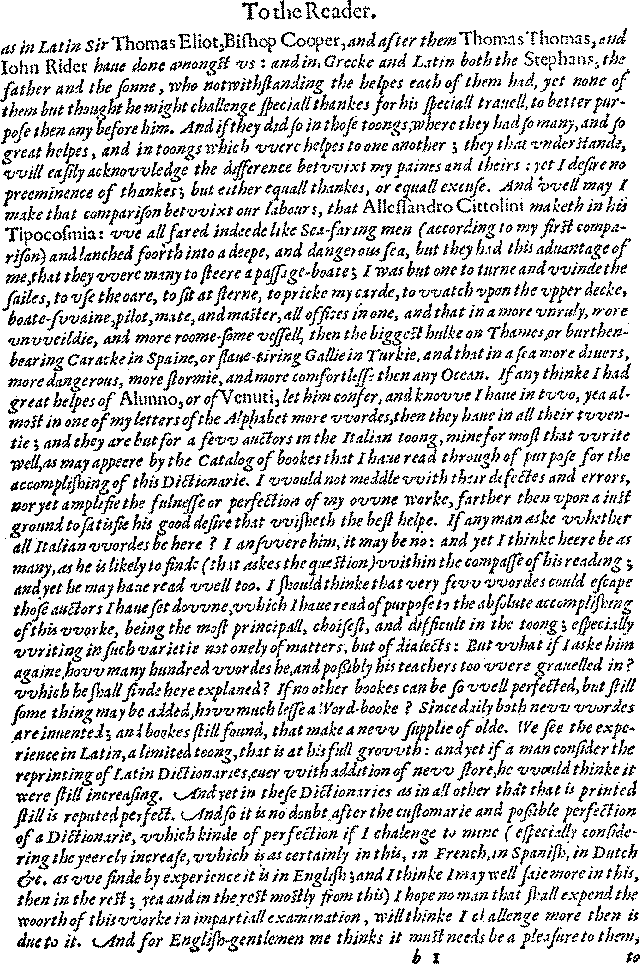 To the Reader.
as in Latin Sir Thomas Eliot, Bishop Cooper, and after them Thomas Thomas, and
Iohn Rider haue done amongst vs: and in Greeke and Latin both the Stephans, the
father and the sonne, who notwithstanding the helpes each of them had, yet none of
them but thought he might challenge speciall thankes for his speciall trauell, to better pur-
pose then any before him. And if they did so in those toongs, where they had so many, and so
great helpes, and in toongs which vvere helpes to one another; they that vnderstande,
vvill easily acknovvledge the difference betvvixt my paines and theirs: yet I desire no
preeminence of thankes; but either equall thankes, or equall excuse. And vvell may I
make that comparison betvvixt our labours, that Allessandro Cittolini maketh in his
Tipocosmia: vve all fared indeede like Sea-faring men (according to my first compa-
rison) and lanched foorth into a deepe, and dangerous sea, but they had this aduantage of
me, that they vvere many to steere a passage-boate; I was but one to turne and vvinde the
sailes, to vse the oare, to sit at sterne, to pricke my carde, to vvatch vpon the vpper decke,
boate-svvaine, pilot, mate, and master, all offices in one, and that in a more vnruly, more
vnvveildie, and more roome-some vessell, then the biggest hulke on Thames, or burthen-
bearing Caracke in Spaine, or slaue-tiring Gallie in Turkie, and that in a sea more diuers,
more dangerous, more stormie, and more comfortlesse then any Ocean. If any thinke I had
great helpes of Alunno, or of Venuti, let him confer, and knovve I haue in tvvo, yea al-
most in one of my letters of the Alphabet more vvordes, then they haue in all their tvven-
tie; and they are but for a fevv auctors in the Italian toong, mine for most that vvrite
well, as may appeere by the Catalog of bookes that I haue read through of purpose for the
accomplishing of this Dictionarie. I vvould not meddle vvith their defectes and errors,
nor yet amplifie the fulnesse or perfection of my ovvne worke, farther then vpon a iust
ground to satisfie his good desire that vvisheth the best helpe. If any man aske vvhether
all Italian vvordes be here? I ansvvere him, it may be no: and yet I thinke heere be as
many, as he is likely to finde (that askes the question) vvithin the compasse of his reading;
and yet he may haue read vvell too. I should thinke that very fevv vvordes could escape
those auctors I haue set dovvne, vvhich I haue read of purpose to the absolute accomplishing
of this vvorke, being the most principall, choisest, and difficult in the toong; especially
vvriting in such varietie not onely of matters, but of dialects: But vvhat if I aske him
againe, hovv many hundred vvordes he, and possibly his teachers too vvere grauelled in?
vvhich he shall finde here explaned? If no other bookes can be so vvell perfected, but still
some thing may be added, hovv much lesse a Word-booke? Since daily both nevv vvordes
are inuented; and bookes still found, that make a nevv supplie of olde. We see the expe-
rience in Latin, a limited toong, that is at his full grovvth: and yet if a man consider the
reprinting of Latin Dictionaries, euer vvith addition of nevv store, he vvould thinke it
were still increasing. And yet in these Dictionaries as in all other that that is printed
still is reputed perfect. And so it is no doubt after the customarie and possible perfection
of a Dictionarie, vvhich kinde of perfection if I chalenge to mine (especially conside-
ring the yeerely increase, vvhich is as certainly in this, in French, in Spanish, in Dutch
&c. as vve finde by experience it is in English; and I thinke I may well saie more in this,
then in the rest; yea and in the rest mostly from this) I hope no man that shall expend the
woorth of this vvorke in impartiall examination, will thinke I challenge more then is
due to it. And for English-gentlemen me thinks it must needs be a pleasure to them,
b 1 to